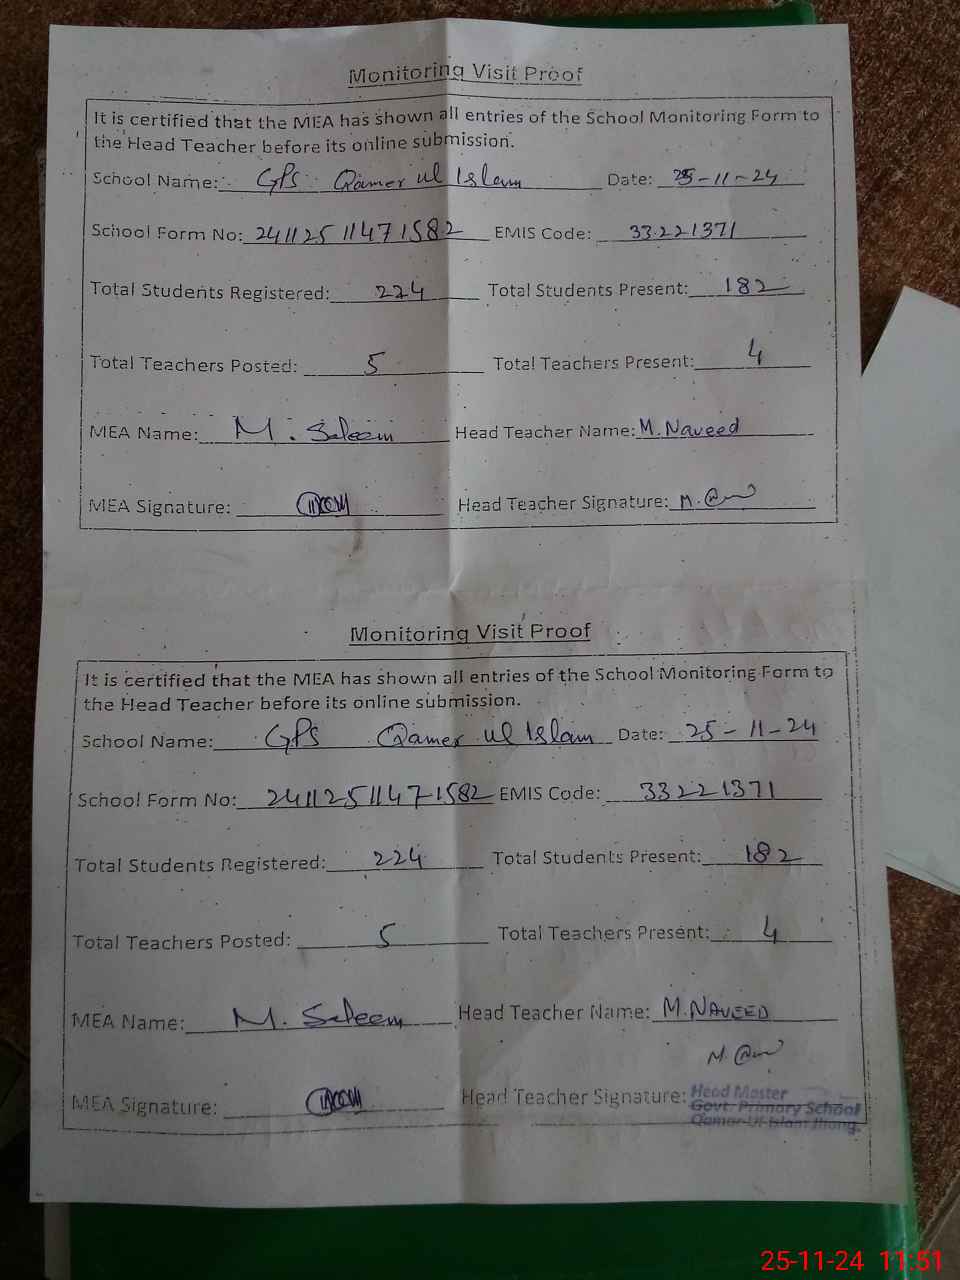 Monitoring Visit Proof
It is certified that the MEA has shown all entries of the School Monitoring Form to
the Head Teacher before its online submission.
School Name: GPS Qamer ul Islam Date: 25-11-24
School Form No: 24112511471582 EMIS Code: 33221371
Total Students Registered: 224 Total Students Present: 182
Total Teachers Posted: 5 Total Teachers Present: 4
MEA Name: M. Saleem Head Teacher Name: M. Naveed
MEA Signature: Head Teacher Signature: M.
Monitoring Visit Proof
It is certified that the MEA has shown all entries of the School Monitoring Form to
the Head Teacher before its online submission.
School Name: GPS Qamer ul Islam Date: 25-11-24
School Form No: 24112511471582 EMIS Code: 33221371
Total Students Registered: 224 Total Students Present: 182
Total Teachers Posted: 5 Total Teachers Present: 4
MEA Name: M. Saleem Head Teacher Name: M. NAVEED
M.
MEA Signature: Head Teacher Signature: Head Master
Govt. Primary School
Qamar-Ul-Islam Jhang.
25-11-24 11:51